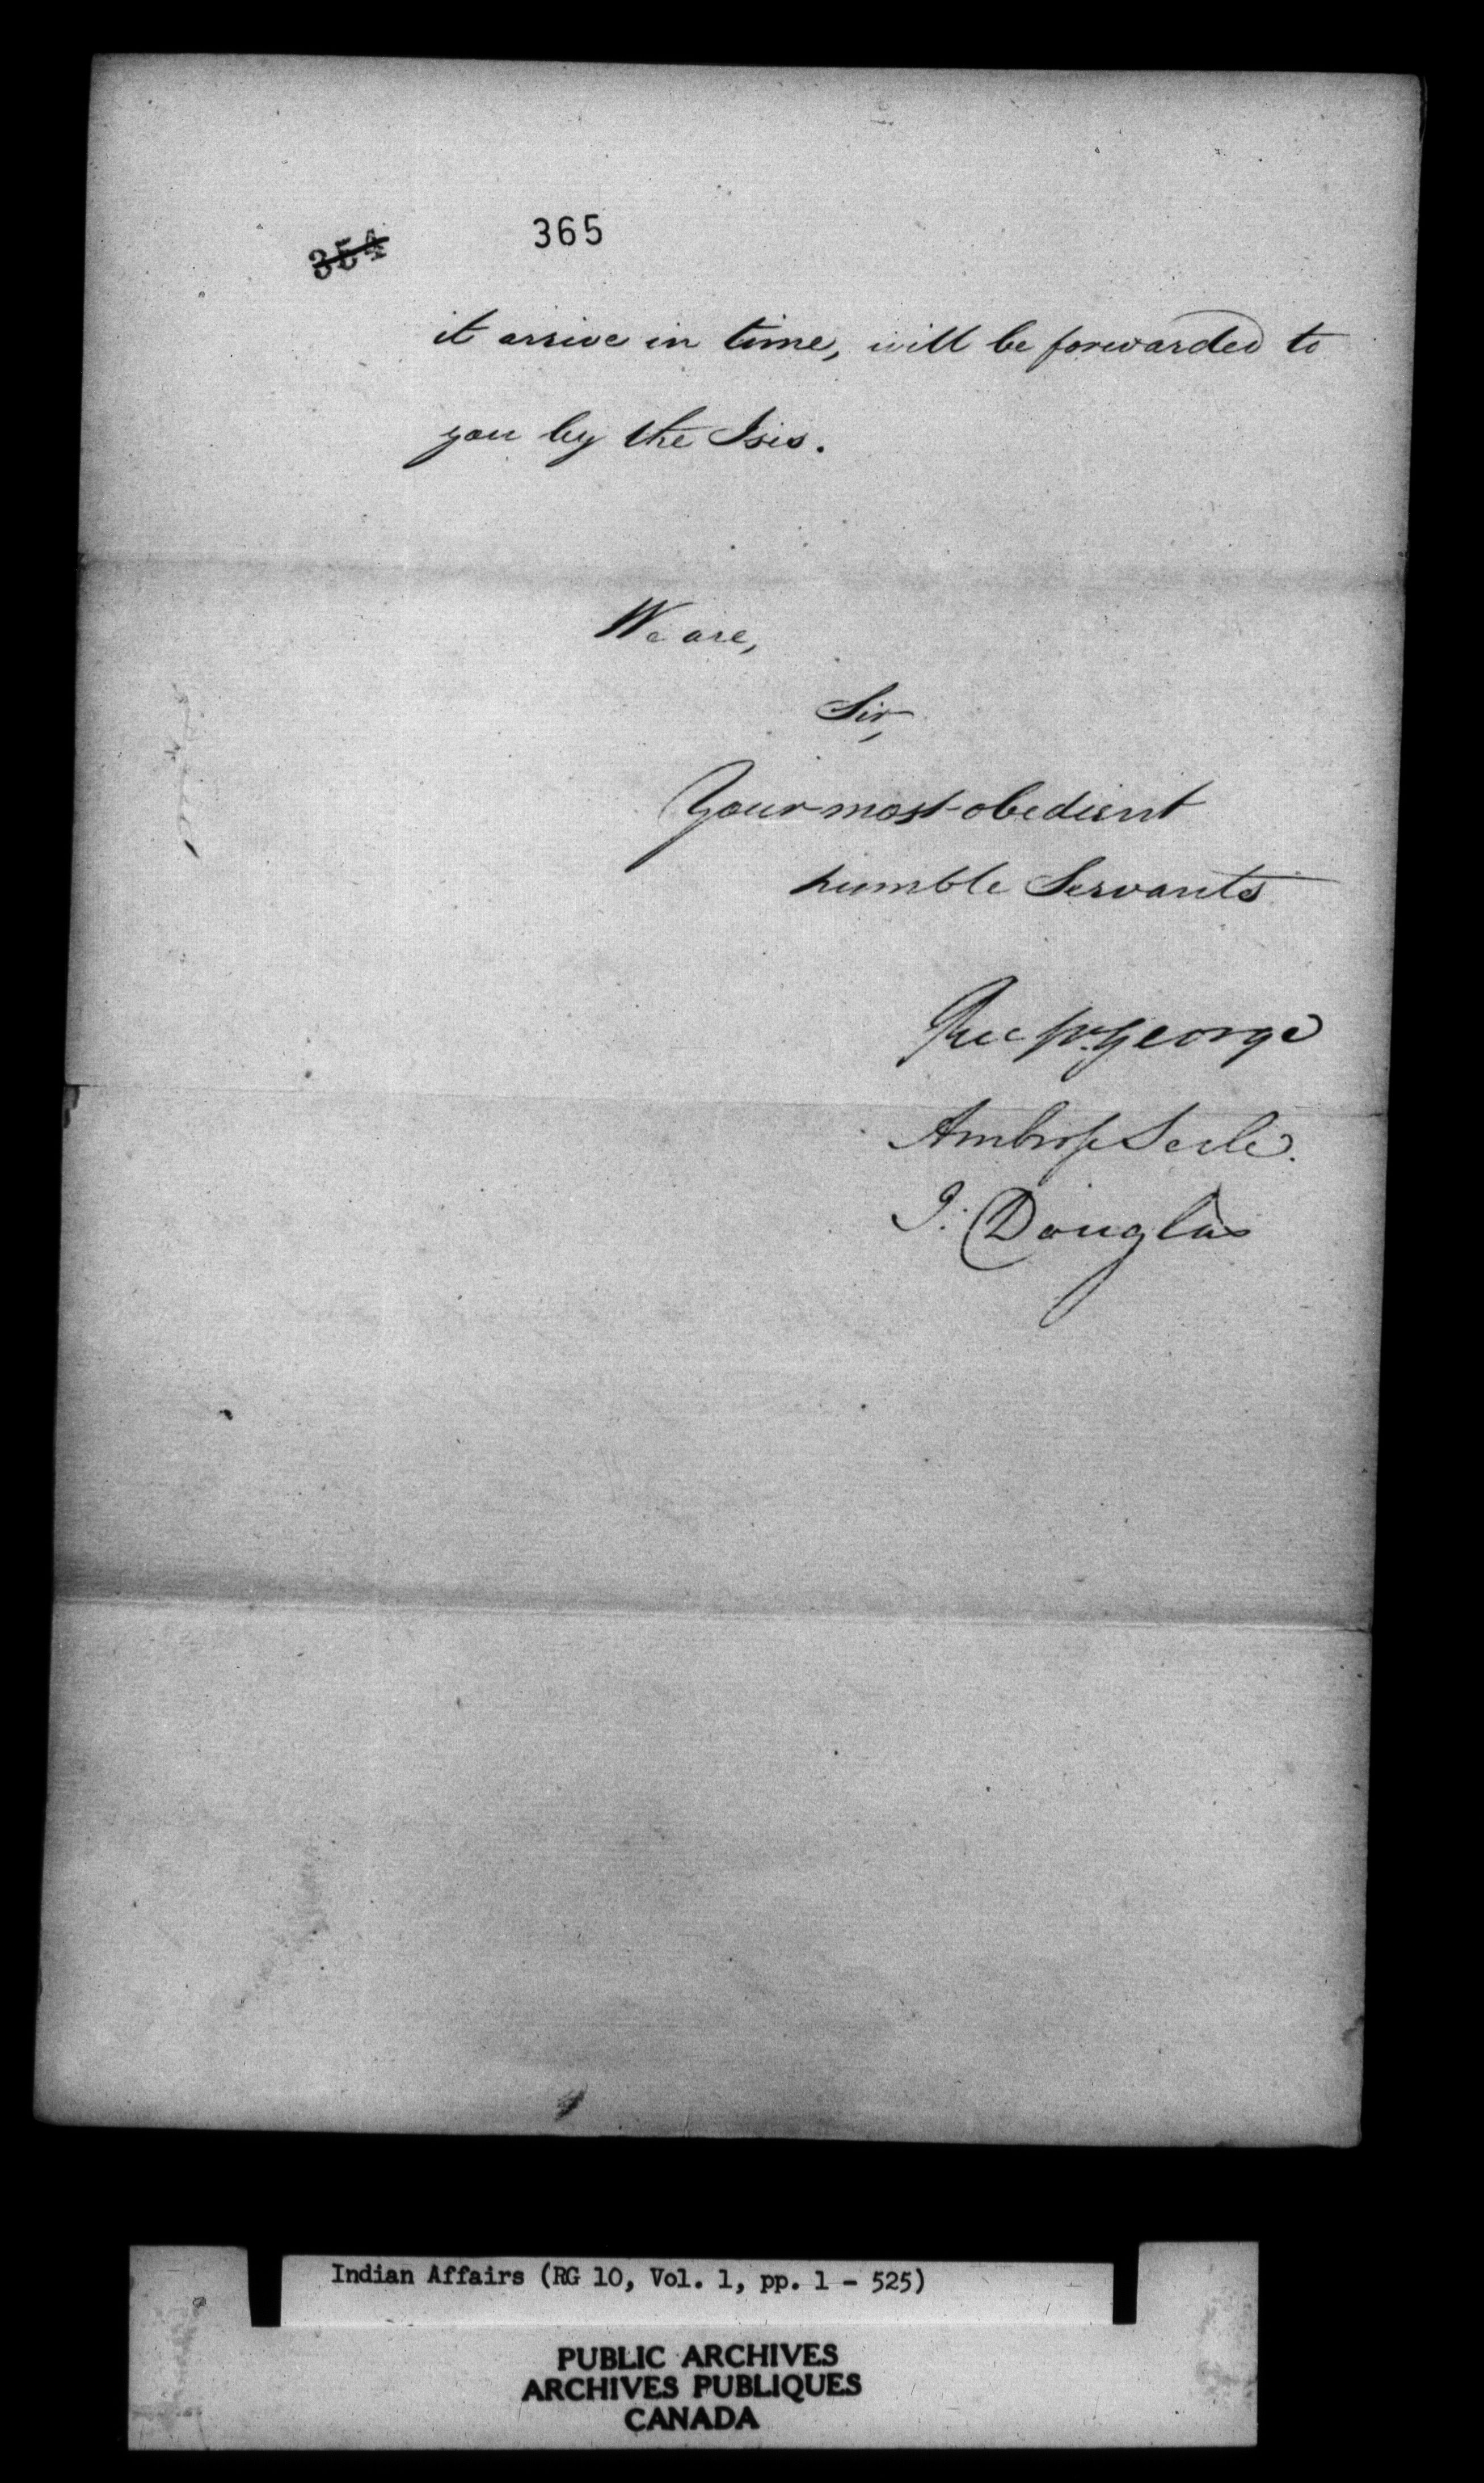 354
365
it arrive in time, will be forwarded to
you by the Isis.
We are,
Sir,
Your most obedient
humble Servants
Rup. George
Ambrose Serle.
J. Douglas
Indian Affairs (RG 10, Vol. 1, pp. 1 - 525)
PUBLIC ARCHIVES
ARCHIVES PUBLIQUES
CANADA